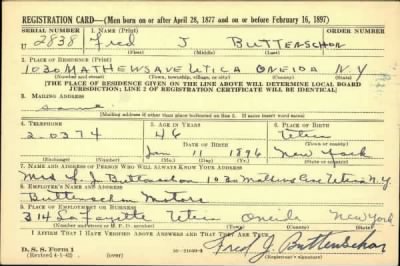 REGISTRATION CARD—(Men born on or after April 28, 1877 and on or before February 16, 1897)
SERIAL NUMBER 1. NAME (Print) ORDER NUMBER
U 2838 Fred J Buttenschon
(First) (Middle) (Last)
2. PLACE OF RESIDENCE (Print)
1030 MATHEWS AVE UTICA ONEIDA N.Y
(Number and street) (Town, township, village, or city) (County) (State)
[THE PLACE OF RESIDENCE GIVEN ON THE LINE ABOVE WILL DETERMINE LOCAL BOARD
JURISDICTION; LINE 2 OF REGISTRATION CERTIFICATE WILL BE IDENTICAL]
3. MAILING ADDRESS
Same
[Mailing address if other than place indicated on line 2. If same insert word same]
4. TELEPHONE 5. AGE IN YEARS 6. PLACE OF BIRTH
2-0374 46 Utica
DATE OF BIRTH (Town or county)
Jan 11 1896 New York
(Exchange) (Number) (Mo.) (Day) (Yr.) (State or country)
7. NAME AND ADDRESS OF PERSON WHO WILL ALWAYS KNOW YOUR ADDRESS
Mrs F. J. Buttenschon 1030 Mathews Ave Utica N.Y.
8. EMPLOYER'S NAME AND ADDRESS
Buttenschon Motors
9. PLACE OF EMPLOYMENT OR BUSINESS
314 LaFayette Utica Oneida New York
(Number and street or R. F. D. number) (Town) (County) (State)
I AFFIRM THAT I HAVE VERIFIED ABOVE ANSWERS AND THAT THEY ARE TRUE.
Fred J. Buttenschon
D. S. S. Form 1
(Revised 4-1-42) (over) (Registrant's signature)